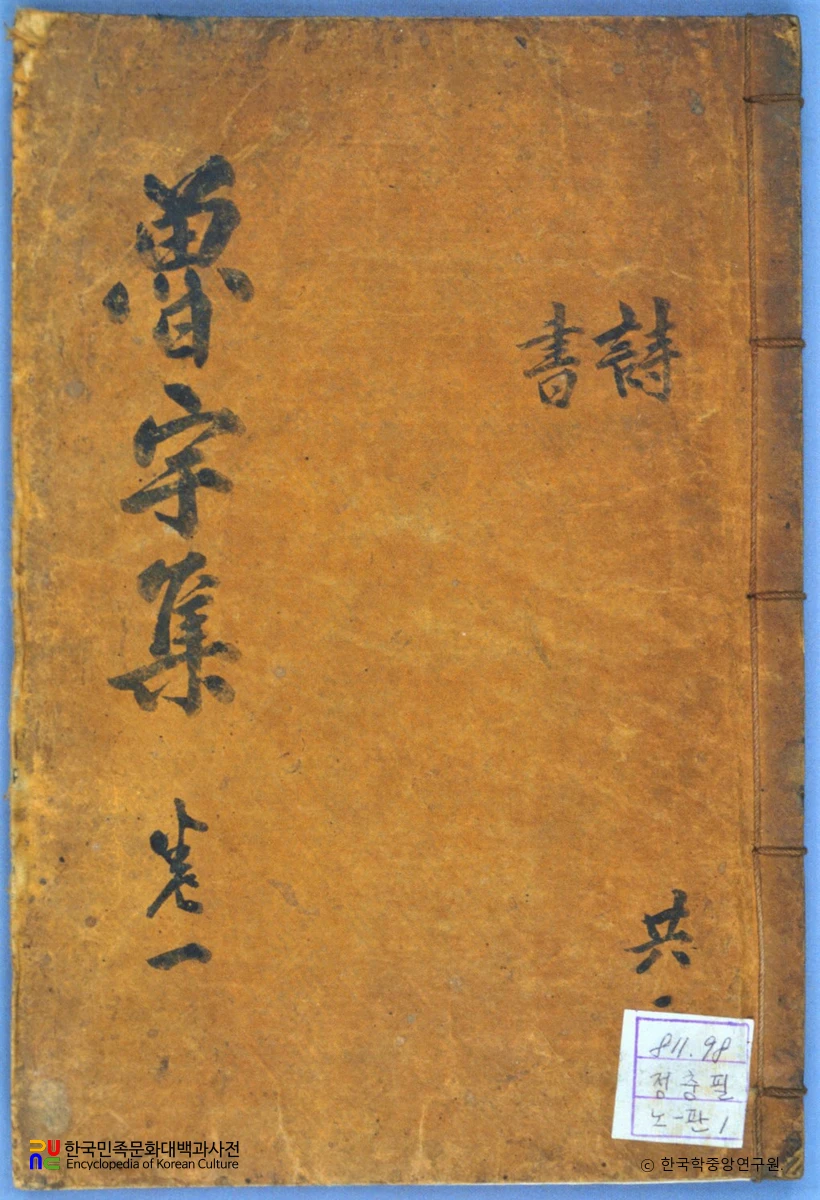 魯宇集 卷一
詩
書
共
811.98
정충필
노-판 1
한국민족문화대백과사전
Encyclopedia of Korean Culture
© 한국학중앙연구원